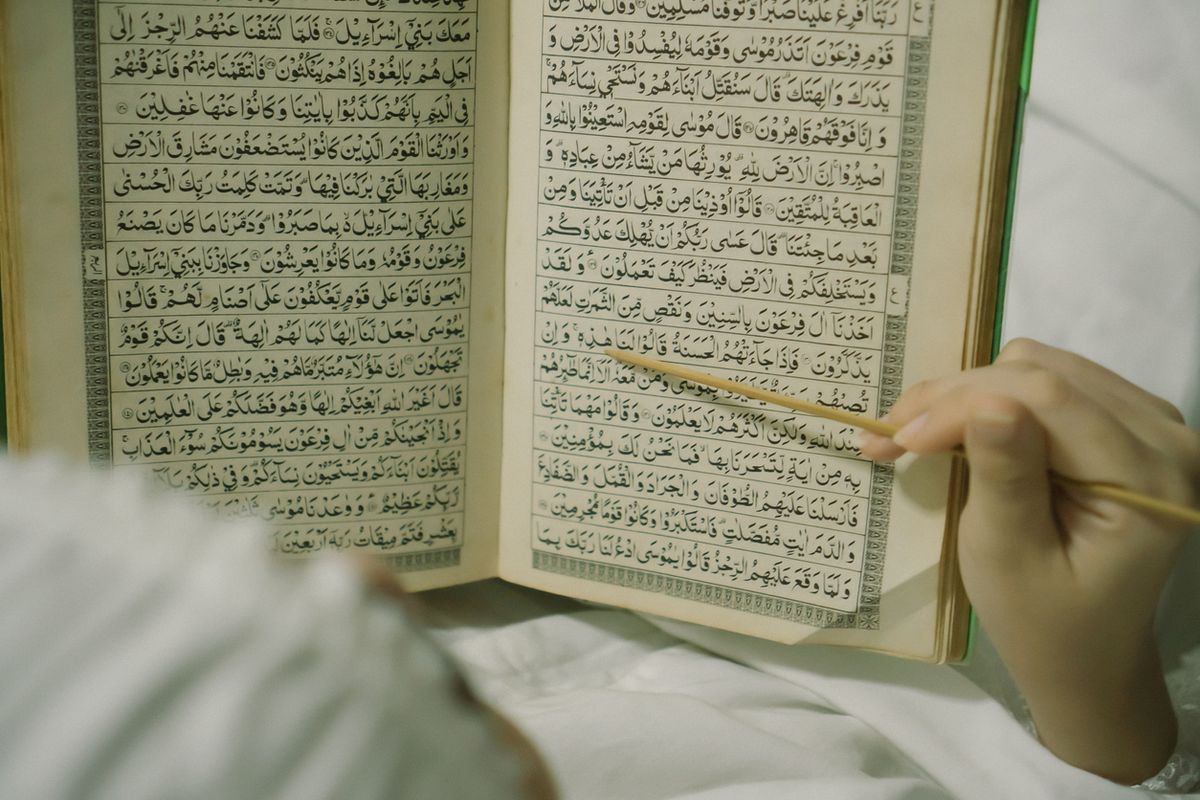 رَبَّنَا اَفْرِغْ عَلَيْنَا صَبْرًا وَّتَوَفَّنَا مُسْلِمِيْنَ وَقَالَ الْمَلَاُ مِنْ
قَوْمِ فِرْعَوْنَ اَتَذَرُ مُوْسٰى وَقَوْمَهٗ لِيُفْسِدُوْا فِى الْاَرْضِ وَ
يَذَرَكَ وَاٰلِهَتَكَ ؕ قَالَ سَنُقَتِّلُ اَبْنَآءَهُمْ وَنَسْتَحْيٖ نِسَآءَهُمْ ۚ
وَاِنَّا فَوْقَهُمْ قٰهِرُوْنَ قَالَ مُوْسٰى لِقَوْمِهِ اسْتَعِيْنُوْا بِاللّٰهِ وَ
اصْبِرُوْا ۚ اِنَّ الْاَرْضَ لِلّٰهِ ۙ يُوْرِثُهَا مَنْ يَّشَآءُ مِنْ عِبَادِهٖ ؕ وَ
الْعَاقِبَةُ لِلْمُتَّقِيْنَ قَالُوْٓا اُوْذِيْنَا مِنْ قَبْلِ اَنْ تَاْتِيَنَا وَمِنْۢ
بَعْدِ مَا جِئْتَنَا ؕ قَالَ عَسٰى رَبُّكُمْ اَنْ يُّهْلِكَ عَدُوَّكُمْ
وَيَسْتَخْلِفَكُمْ فِى الْاَرْضِ فَيَنْظُرَ كَيْفَ تَعْمَلُوْنَ وَلَقَدْ
اَخَذْنَآ اٰلَ فِرْعَوْنَ بِالسِّنِيْنَ وَنَقْصٍ مِّنَ الثَّمَرٰتِ لَعَلَّهُمْ
يَذَّكَّرُوْنَ فَاِذَا جَآءَتْهُمُ الْحَسَنَةُ قَالُوْا لَنَا هٰذِهٖ ۚ وَاِنْ
تُصِبْهُمْ بِمُوْسٰى وَمَنْ مَّعَهٗ ؕ اَلَآ اِنَّمَا طٰٓئِرُهُمْ
عِنْدَ اللّٰهِ وَلٰكِنَّ اَكْثَرَهُمْ لَا يَعْلَمُوْنَ وَقَالُوْا مَهْمَا تَاْتِنَا
بِهٖ مِنْ اٰيَةٍ لِّتَسْحَرَنَا بِهَا ۙ فَمَا نَحْنُ لَكَ بِمُؤْمِنِيْنَ
فَاَرْسَلْنَا عَلَيْهِمُ الطُّوْفَانَ وَالْجَرَادَ وَالْقُمَّلَ وَالضَّفَادِعَ
وَالدَّمَ اٰيٰتٍ مُّفَصَّلٰتٍ ۫ فَاسْتَكْبَرُوْا وَكَانُوْا قَوْمًا مُّجْرِمِيْنَ
وَلَمَّا وَقَعَ عَلَيْهِمُ الرِّجْزُ قَالُوْا يٰمُوْسَى ادْعُ لَنَا رَبَّكَ بِمَا
مَعَكَ بَنِيْٓ اِسْرَآءِيْلَ فَلَمَّا كَشَفْنَا عَنْهُمُ الرِّجْزَ اِلٰٓى
اَجَلٍ هُمْ بٰلِغُوْهُ اِذَا هُمْ يَنْكُثُوْنَ فَانْتَقَمْنَا مِنْهُمْ فَاَغْرَقْنٰهُمْ
فِى الْيَمِّ بِاَنَّهُمْ كَذَّبُوْا بِاٰيٰتِنَا وَكَانُوْا عَنْهَا غٰفِلِيْنَ
وَاَوْرَثْنَا الْقَوْمَ الَّذِيْنَ كَانُوْا يُسْتَضْعَفُوْنَ مَشَارِقَ الْاَرْضِ
وَمَغَارِبَهَا الَّتِيْ بٰرَكْنَا فِيْهَا ؕ وَتَمَّتْ كَلِمَتُ رَبِّكَ الْحُسْنٰى
عَلٰى بَنِيْٓ اِسْرَآءِيْلَ ۙ بِمَا صَبَرُوْا ؕ وَدَمَّرْنَا مَا كَانَ يَصْنَعُ
فِرْعَوْنُ وَقَوْمُهٗ وَمَا كَانُوْا يَعْرِشُوْنَ وَجَاوَزْنَا بِبَنِيْٓ اِسْرَآءِيْلَ
الْبَحْرَ فَاَتَوْا عَلٰى قَوْمٍ يَّعْكُفُوْنَ عَلٰٓى اَصْنَامٍ لَّهُمْ ۚ قَالُوْا
يٰمُوْسَى اجْعَلْ لَّنَآ اِلٰهًا كَمَا لَهُمْ اٰلِهَةٌ ؕ قَالَ اِنَّكُمْ قَوْمٌ
تَجْهَلُوْنَ اِنَّ هٰٓؤُلَآءِ مُتَبَّرٌ مَّا هُمْ فِيْهِ وَبٰطِلٌ مَّا كَانُوْا يَعْمَلُوْنَ
قَالَ اَغَيْرَ اللّٰهِ اَبْغِيْكُمْ اِلٰهًا وَّهُوَ فَضَّلَكُمْ عَلَى الْعٰلَمِيْنَ
وَاِذْ اَنْجَيْنٰكُمْ مِّنْ اٰلِ فِرْعَوْنَ يَسُوْمُوْنَكُمْ سُوْٓءَ الْعَذَابِ ۚ
يُقَتِّلُوْنَ اَبْنَآءَكُمْ وَيَسْتَحْيُوْنَ نِسَآءَكُمْ ؕ وَفِيْ ذٰلِكُمْ
رَّبِّكُمْ عَظِيْمٌ وَوٰعَدْنَا مُوْسٰى
بِعَشْرٍ فَتَمَّ مِيْقَاتُ رَبِّهٖٓ اَرْبَعِيْنَ